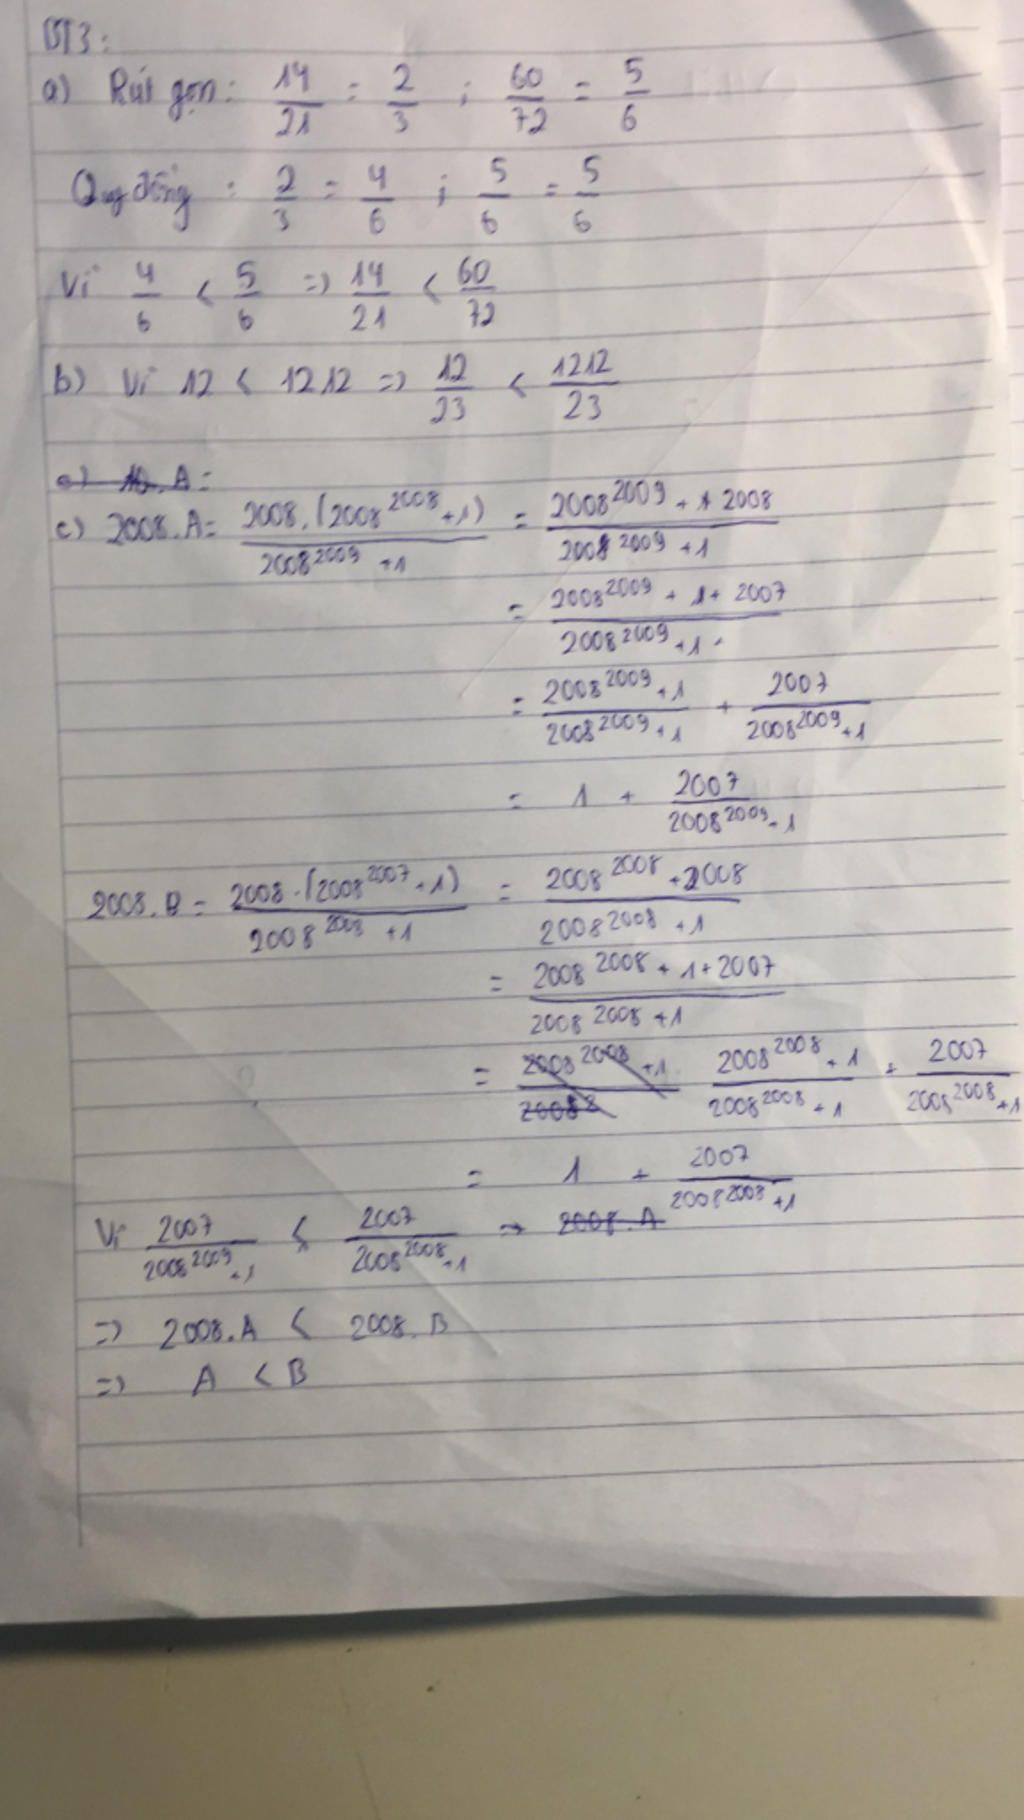 BT3:
a) Rút gọn: 14/21 = 2/3 ; 60/72 = 5/6
Quy đồng : 2/3 = 4/6 ; 5/6 = 5/6
Vì 4/6 < 5/6 => 14/21 < 60/72
b) Vì 12 < 1212 => 12/23 < 1212/23
c) 2008.A = 2008.(2008^2008 + 1)/(2008^2009 + 1) = (2008^2009 + 2008)/(2008^2009 + 1)
= (2008^2009 + 1 + 2007)/(2008^2009 + 1)
= (2008^2009 + 1)/(2008^2009 + 1) + 2007/(2008^2009 + 1)
= 1 + 2007/(2008^2009 + 1)
2008.B = 2008.(2008^2007 + 1)/(2008^2008 + 1) = (2008^2008 + 2008)/(2008^2008 + 1)
= (2008^2008 + 1 + 2007)/(2008^2008 + 1)
= (2008^2008 + 1)/(2008^2008 + 1) + 2007/(2008^2008 + 1)
= 1 + 2007/(2008^2008 + 1)
Vì 2007/(2008^2009 + 1) < 2007/(2008^2008 + 1)
=> 2008.A < 2008.B
=> A < B